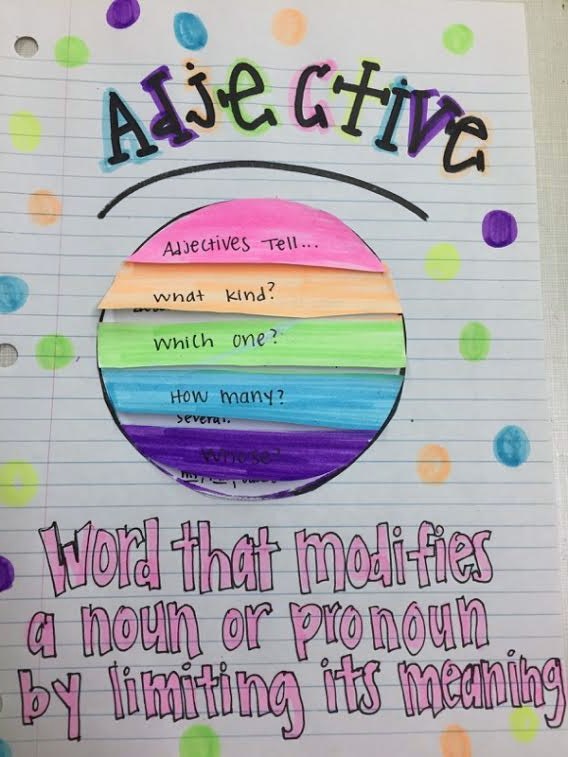 Adjective
Adjectives Tell...
what kind?
which one?
How many?
several.
Whose?
Word that modifies
a noun or pronoun
by limiting its meaning